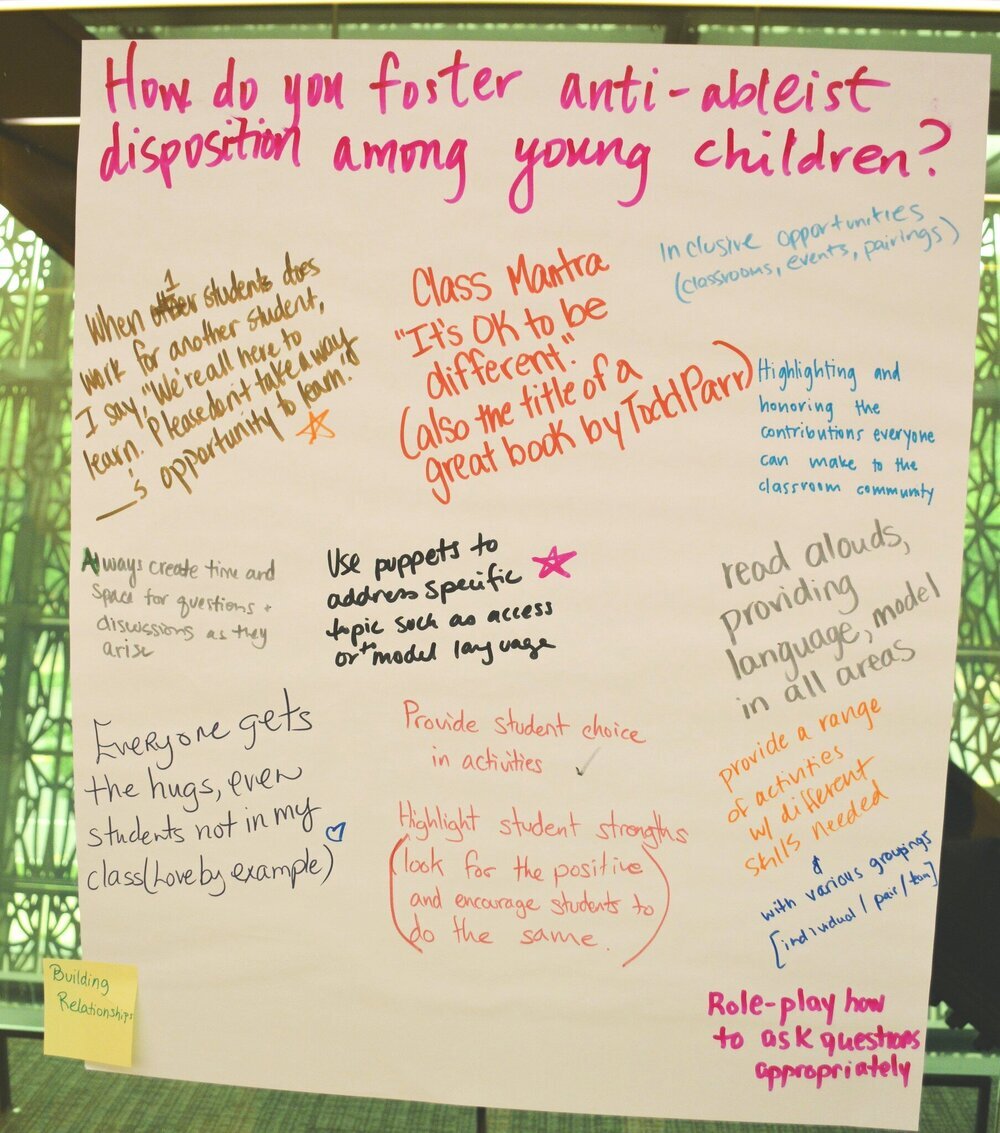 How do you foster anti-ableist
disposition among young children?
Inclusive opportunities
(classrooms, events, pairings)
When 1 students does
work for another student,
I say, "We're all here to
learn. Please don't take away
___'s opportunity to learn."
Class Mantra
"It's OK to be
different."
(also the title of a
great book by Todd Parr)
Highlighting and
honoring the
contributions everyone
can make to the
classroom community
Always create time and
space for questions +
discussions as they
arise
Use puppets to
address specific
topic such as access
or to model language
read alouds,
providing
language, model
in all areas
Everyone gets
the hugs, even
students not in my
class (Love by example)
Provide student choice
in activities ✓
Highlight student strengths
(look for the positive
and encourage students to
do the same.)
provide a range
of activities
w/ different
skills needed
&
with various groupings
[individual / pair / team]
Role-play how
to ask questions
appropriately
Building
Relationships